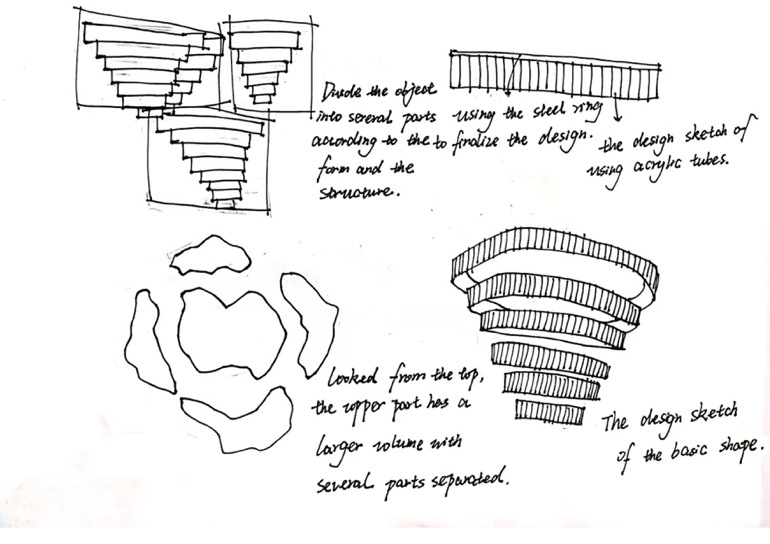 Divide the object
into several parts
according to the
form and the
structure.
using the steel ring
to finalize the design.
the design sketch of
using acrylic tubes.
Looked from the top,
the upper part has a
larger volume with
several parts separated.
The design sketch
of the basic shape.